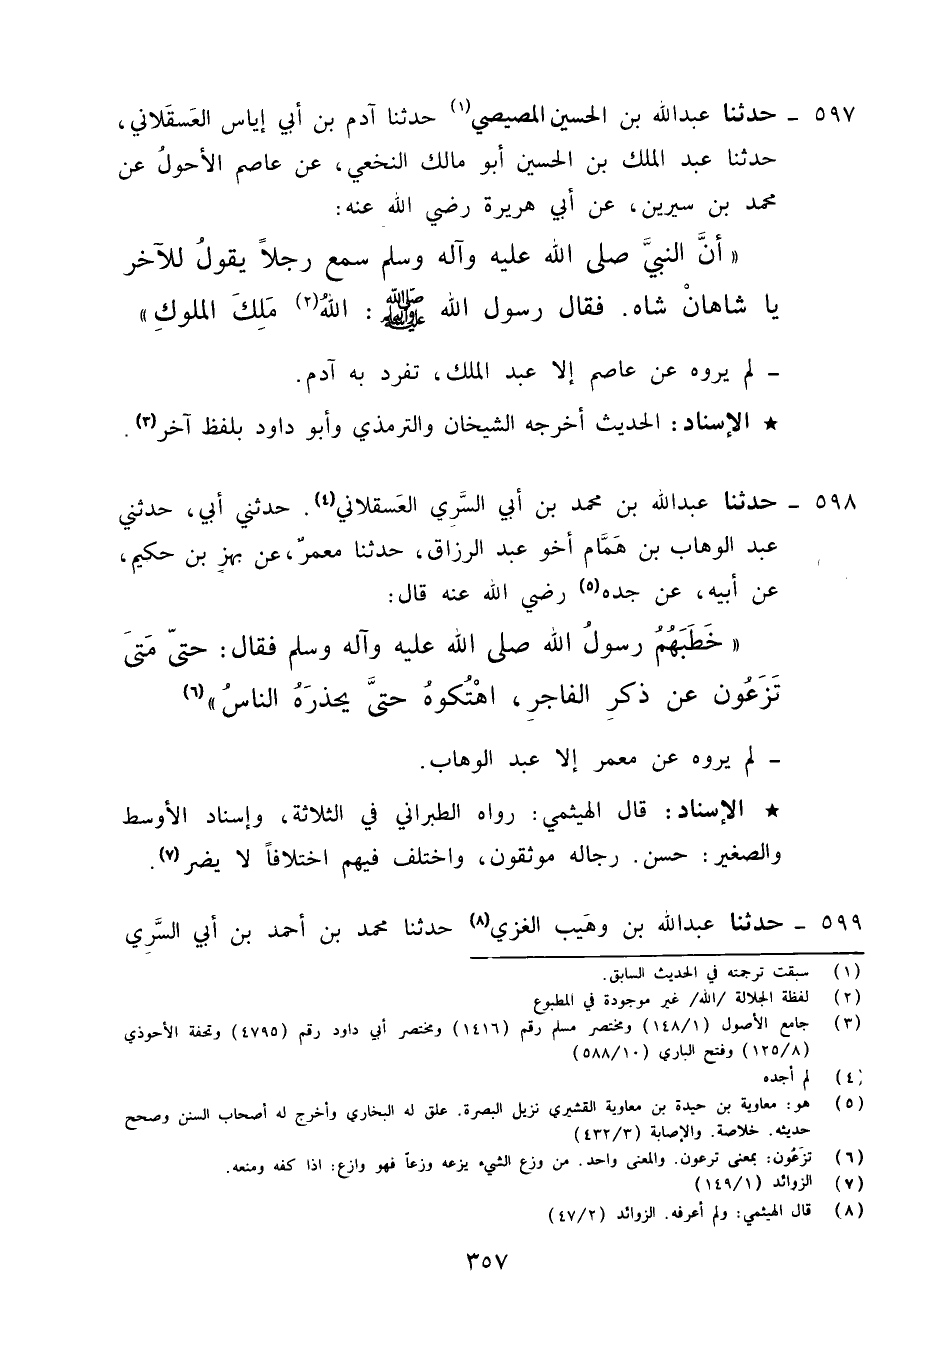 ٥٩٧ - حدثنا عبدالله بن الحسين المصيصي(١) حدثنا آدم بن أبي إياس العَسقَلاني،
حدثنا عبد الملك بن الحسين أبو مالك النخعي، عن عاصم الأحولُ عن
محمد بن سيرين، عن أبي هريرة رضي الله عنه:
« أنَّ النبيَّ صلى الله عليه وآله وسلم سمع رجلاً يقولُ للآخر
يا شاهانْ شاه. فقال رسول الله ﷺ : اللهُ(٢) مَلِكَ الملوكِ »
- لم يروه عن عاصم إلا عبد الملك، تفرد به آدم.
★ الإسناد: الحديث أخرجه الشيخان والترمذي وأبو داود بلفظ آخر(٣).
٥٩٨ - حدثنا عبدالله بن محمد بن أبي السَّرِي العَسقلاني(٤). حدثني أبي، حدثني
عبد الوهاب بن هَمَّام أخو عبد الرزاق، حدثنا معمرّ، عن بهزِ بن حكيم،
عن أبيه، عن جده(٥) رضي الله عنه قال:
« خَطَبَهُمُ رسولُ الله صلى الله عليه وآله وسلم فقال: حتىّ مَتىَ
تَزَعُون عن ذكرِ الفاجرِ، اهْتُكوهُ حتىَّ يحذرَهُ الناسُ »(٦)
- لم يروه عن معمر إلا عبد الوهاب.
★ الإسناد: قال الهيثمي: رواه الطبراني في الثلاثة، وإسناد الأوسط
والصغير: حسن. رجاله موثقون، واختلف فيهم اختلافاً لا يضر(٧).
٥٩٩ - حدثنا عبدالله بن وهَيب الغزي(٨) حدثنا محمد بن أحمد بن أبي السَّرِي
(١) سبقت ترجمته في الحديث السابق.
(٢) لفظة الجلالة /الله/ غير موجودة في المطبوع
(٣) جامع الأصول (١٤٨/١) ومختصر مسلم رقم (١٤١٦) ومختصر أبي داود رقم (٤٧٩٥) وتحفة الأحوذي
(١٢٥/٨) وفتح الباري (٥٨٨/١٠)
(٤) لم أجده
(٥) هو: معاوية بن حيدة بن معاوية القشيري نزيل البصرة. علق له البخاري وأخرج له أصحاب السنن وصحح
حديثه. خلاصة. والإصابة (٤٣٢/٣)
(٦) تزَعُون: بمعنى ترعون. والمعنى واحد. من وزع الشيء يزعه وزعاً فهو وازع: اذا كفه ومنعه.
(٧) الزوائد (١٤٩/١)
(٨) قال الهيثمي: ولم أعرفه. الزوائد (٤٧/٢)
٣٥٧